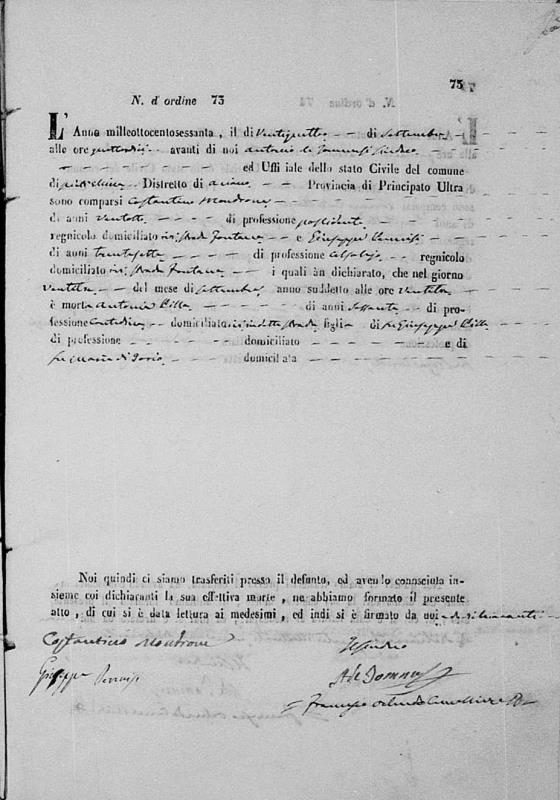 75
N. d' ordine 73
L' Anno milleottocentosessanta, il dì Ventiquattro di Settembre
alle ore quattordici avanti di noi Antonio Sindaco
ed Uffi iale dello stato Civile del comune
di Distretto di Ariano Provincia di Principato Ultra
sono comparsi Costantino Mondrone
di anni ventotto di professione possidente
regnicolo domiciliato ivi strada Fontana e Giuseppe
di anni trentasette di professione Calzolajo regnicolo
domiciliato ivi strada Fontana i quali àn dichiarato, che nel giorno
del mese di Settembre, anno suddetto alle ore
è morta Antonia Cilla di anni Sessanta di pro-
fessione Contadina domiciliata ivi in detta strada figlia di fu Giuseppe Cilla
di professione domiciliato e di
fu Maria di Iorio domicil ata
Noi quindi ci siamo trasferiti presso il defunto, ed avendo conosciuta in-
sieme coi dichiaranti la sua effettiva morte, ne abbiamo formato il presente
atto, di cui si è data lettura ai medesimi, ed indi si è firmato da noi e dichiaranti
Costantino Mondrone Il Sindaco
Giuseppe
Francesco